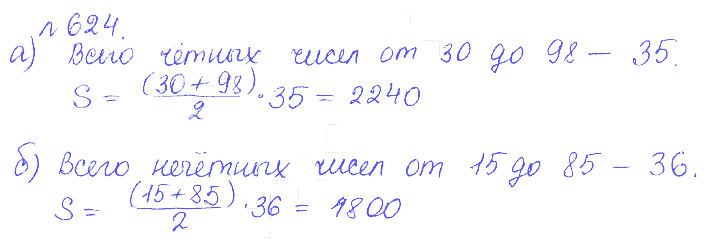 № 624.
а) Всего чётных чисел от 30 до 98 – 35.
S = (30+98)/2 · 35 = 2240
б) Всего нечётных чисел от 15 до 85 – 36.
S = (15+85)/2 · 36 = 1800